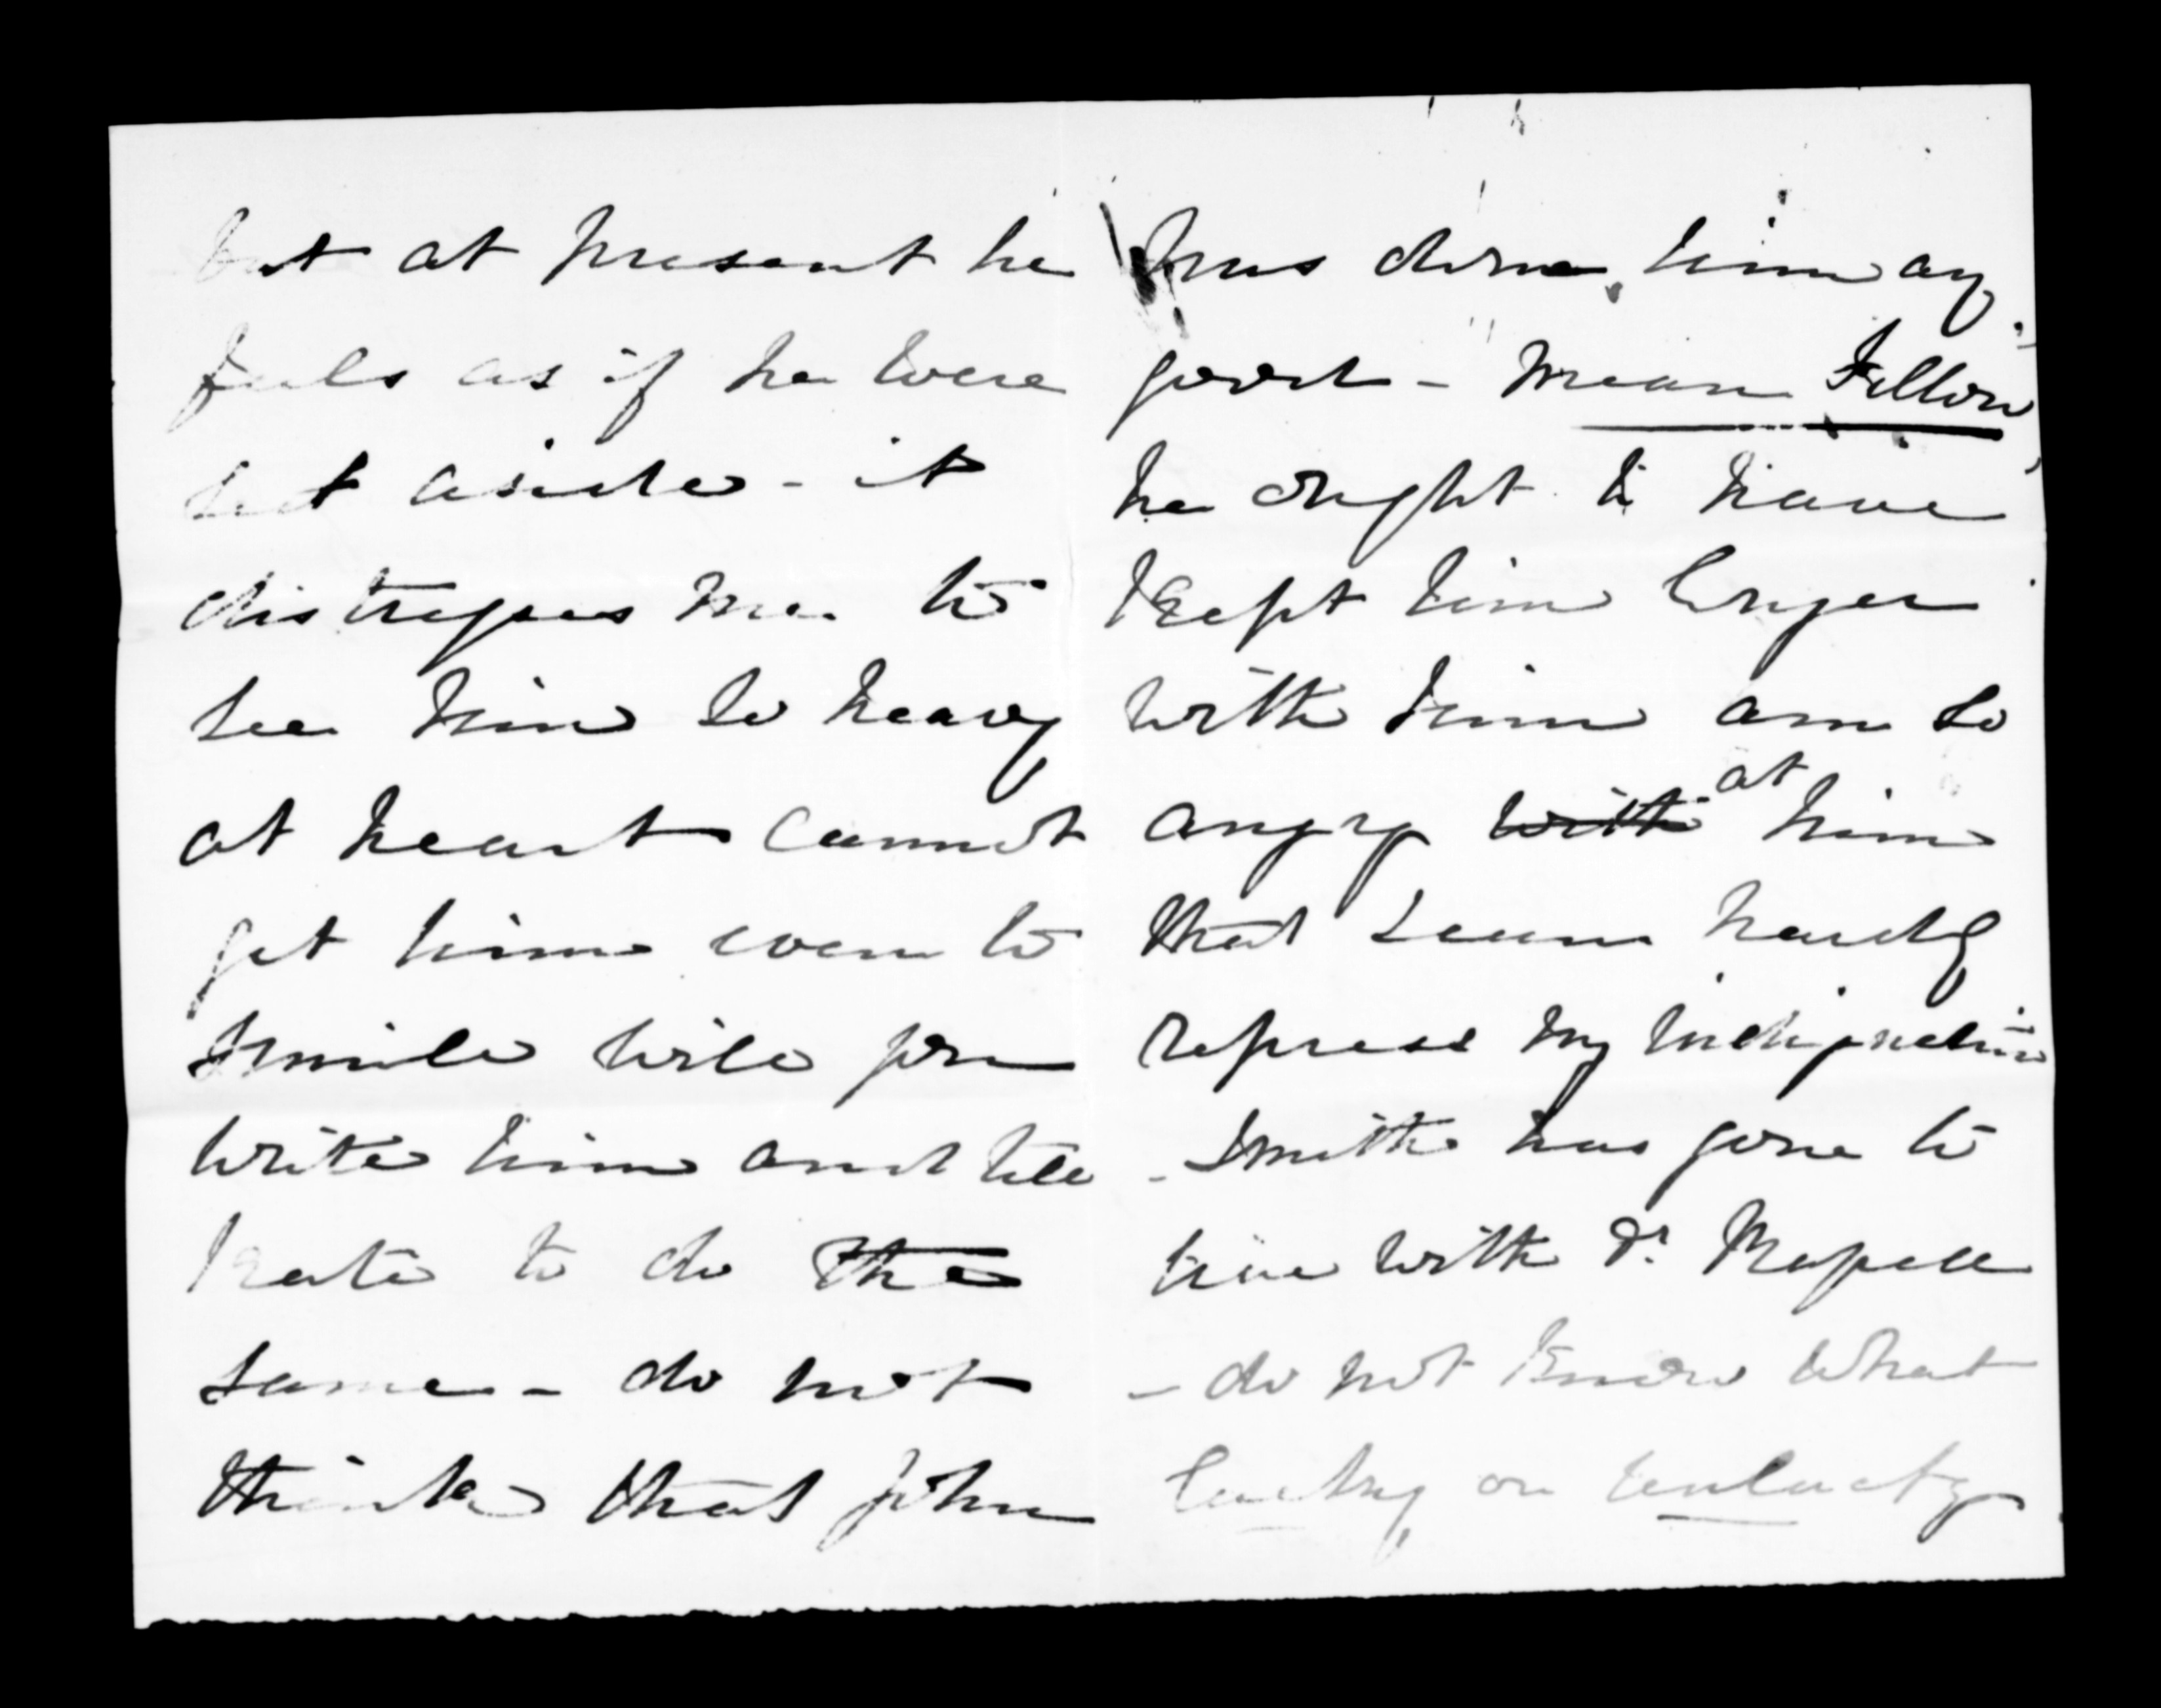 but at present he
feels as if he were
set aside - it
distresses me to
see him so heavy
at heart cannot
get him even to
smile will you
write him and tell
Kate to do the
same - do not
think that John
has done him any
good - mean Fellow
he ought to have
kept him longer
with him am so
angry with at him
that I can hardly
repress my indignation
- Smith has gone to
live with Dr
- do not know what
lucky or unlucky